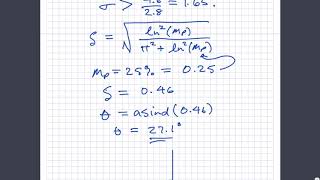 σ > 4.6/2.8 = 1.65.
ζ = √(ln²(Mp) / (π² + ln²(Mp)))
Mp = 25% = 0.25
ζ = 0.46
θ = asind(0.46)
θ = 27.1°